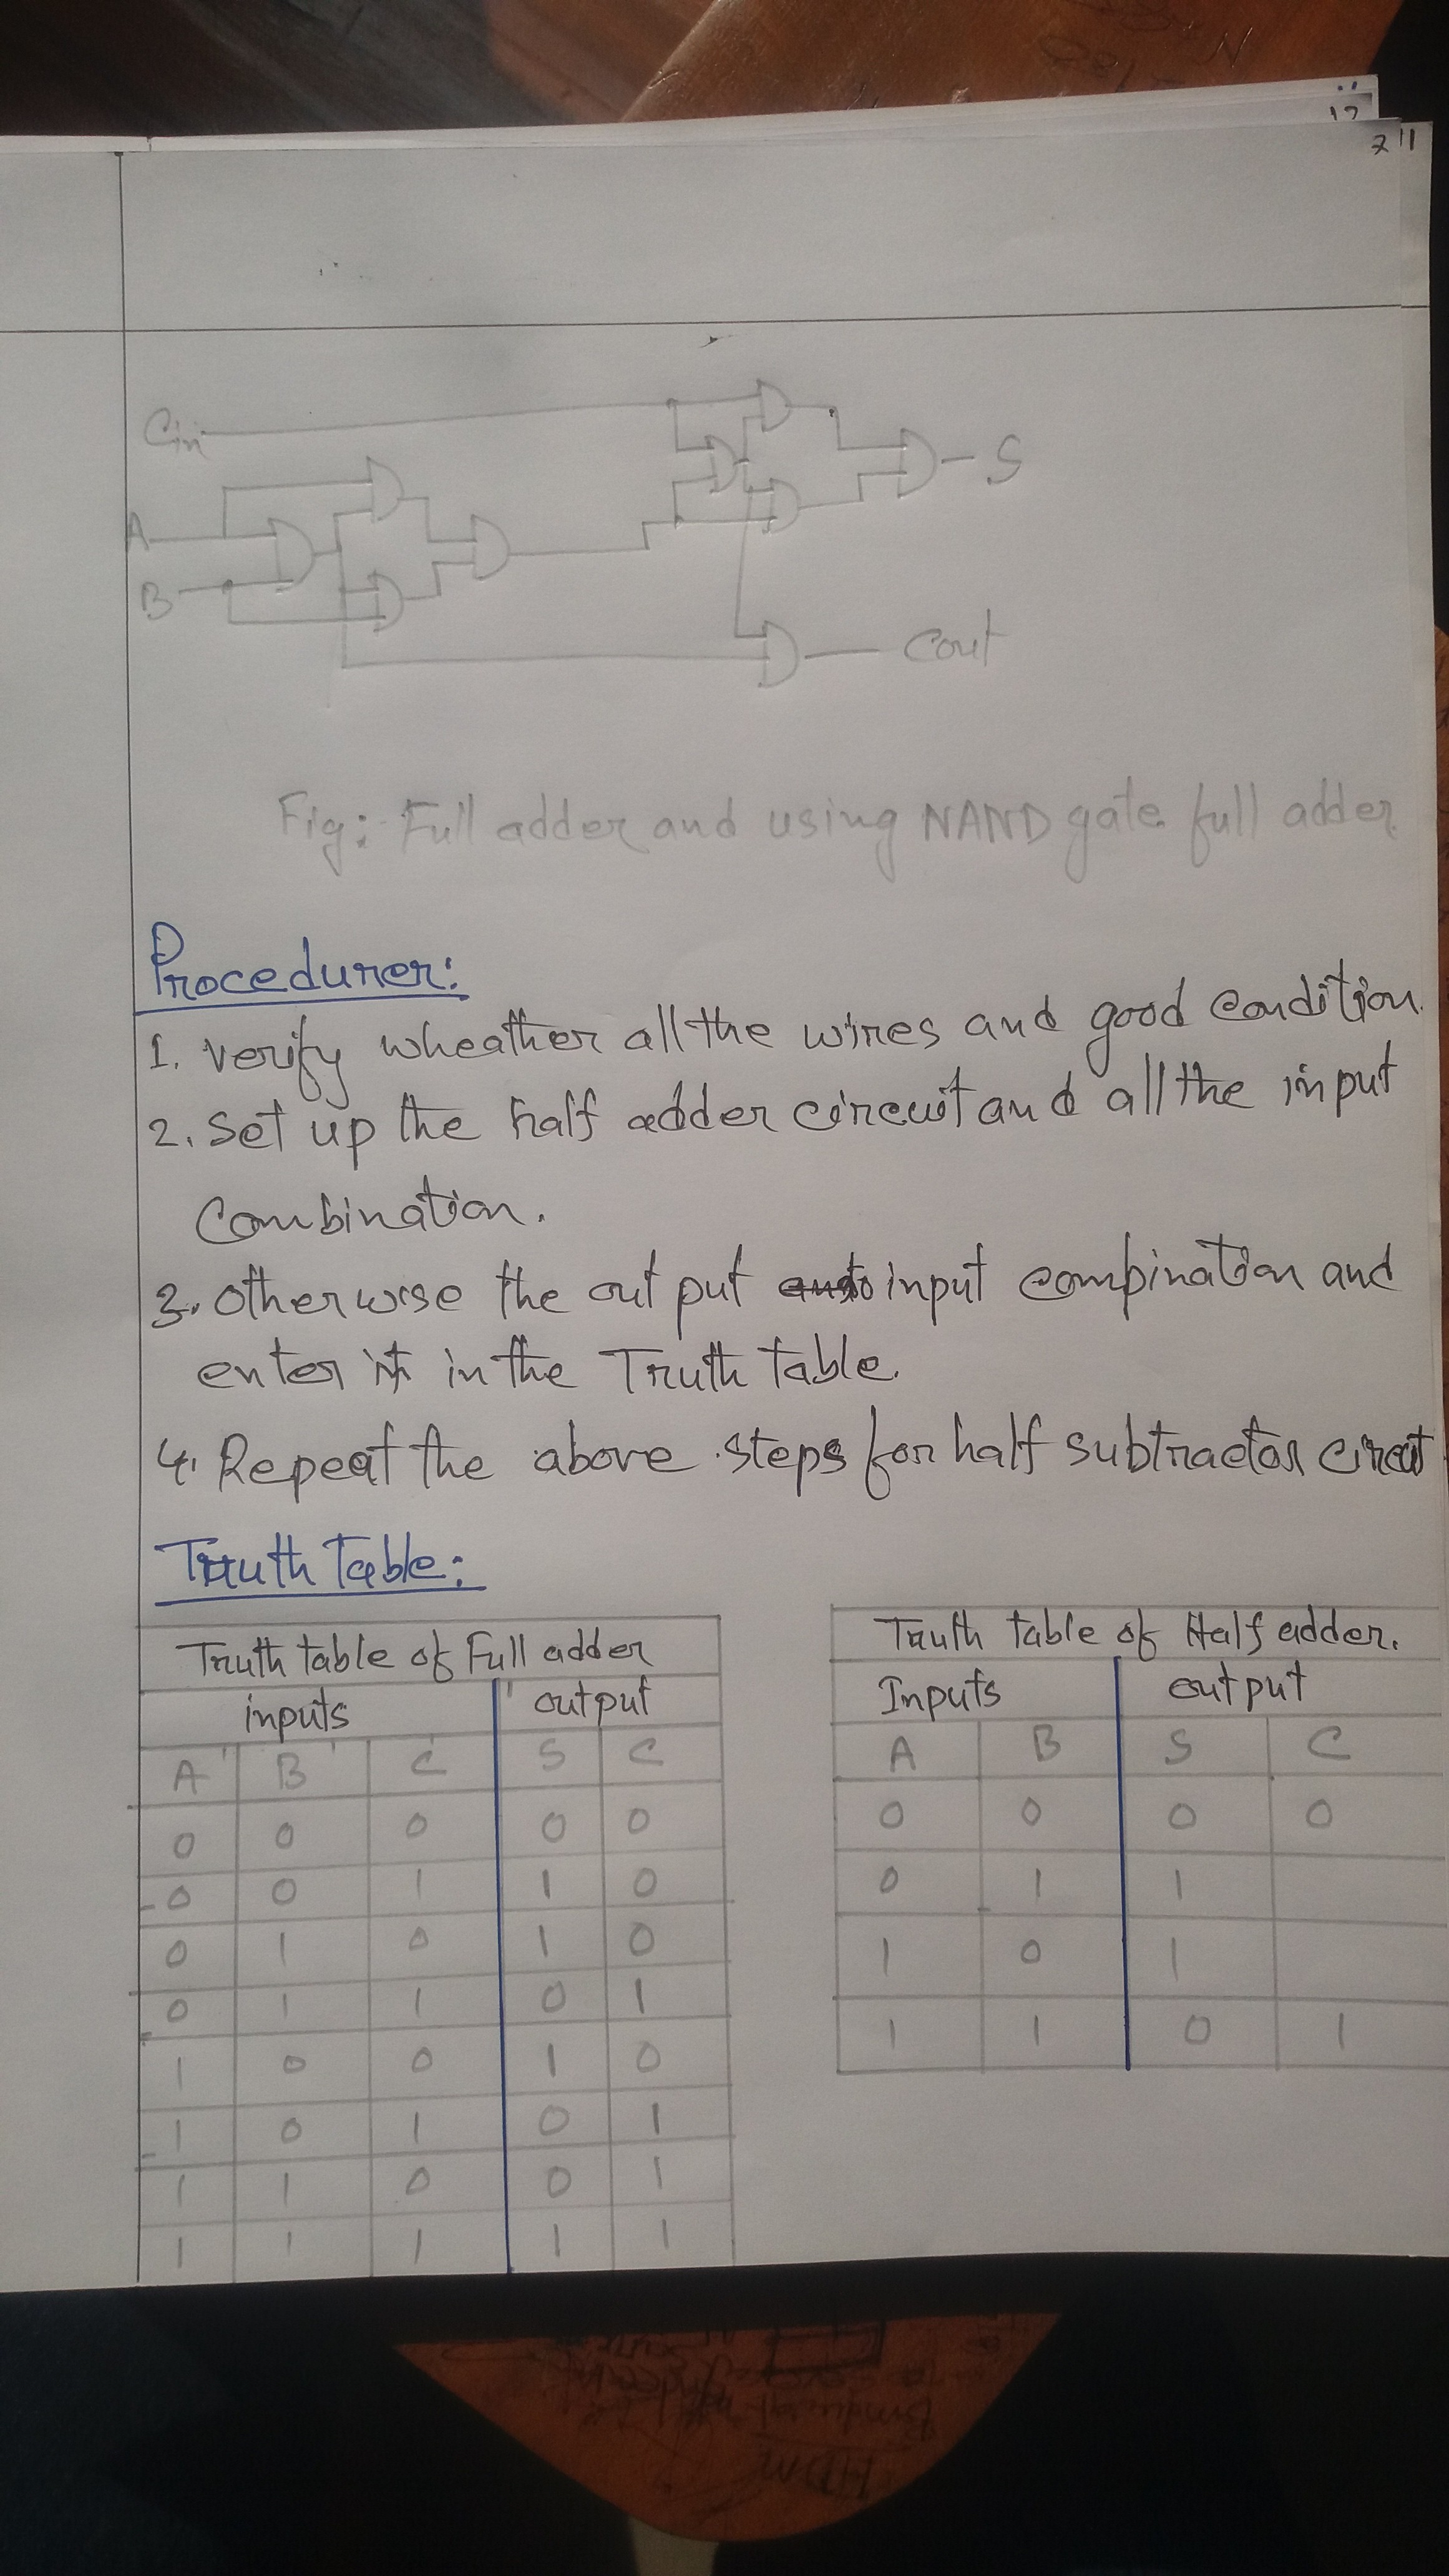 211
Cin
A
B
S
Cout
Fig: Full adder and using NAND gate full adder
Procedurer:
1. verify wheather all the wires and good condition.
2. Set up the half adder circuit and all the input
Combination.
3. Otherwise the out put input combination and
enter it in the Truth table.
4. Repeat the above steps for half subtractor circut
Truth Table:
Truth table of Full adder
inputs output
A B C S C
0 0 0 0 0
0 0 1 1 0
0 1 0 1 0
0 1 1 0 1
1 0 0 1 0
1 0 1 0 1
1 1 0 0 1
1 1 1 1 1
Truth table of Half adder.
Inputs output
A B S C
0 0 0 0
0 1 1
1 0 1
1 1 0 1
HDM